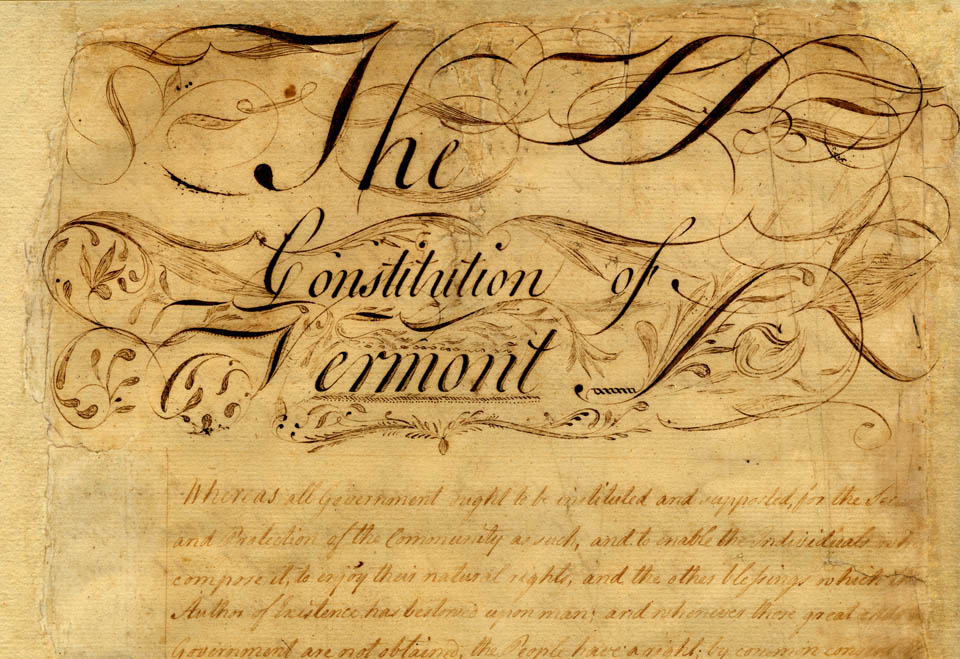 The
Constitution of
Vermont
Whereas all Government ought to be instituted and supported, for the
and Protection of the Community as such, and to enable the Individuals
compose it, to enjoy their natural rights, and the other blessings which
Author of Existence has bestowed upon man; and whenever those great ends
Government are not obtained, the People have a right, by common